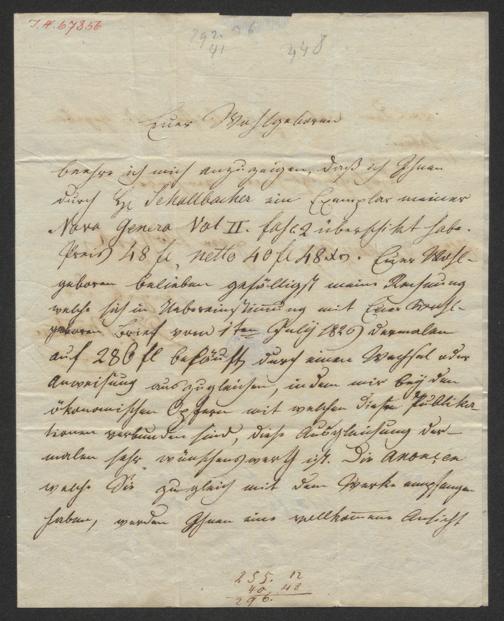 I.N. 67856
292.
41
448
Euer Wohlgeboren
beehre ich mich anzuzeigen, daß ich Ihnen
durch Hr. Schallbacher ein Exemplar meiner
Nova Genera Vol II. fasc 2 überschikt habe.
Preis 48 fl netto 40 fl 48 xr. Euer Wohl-
geboren belieben gefälligst meine Rechnung
welche sich in Uebereinstimmung mit Euer Wohl-
geboren Brief vom 1ten July 1826 dermalen
auf 286 fl beläuft, durch einen Wechsel oder
Anweisung auszugleichen, indem mir bey den
ökonomischen Opfern mit welchen diese Publika-
tionen verbunden sind, diese Ausgleichung der-
malen sehr wünschenswerth ist. Die Anonçen
welche Sie zugleich mit dem Werke empfangen
haben, werden Ihnen eine vollkommene Ansicht
255. 12
40. 48
296.